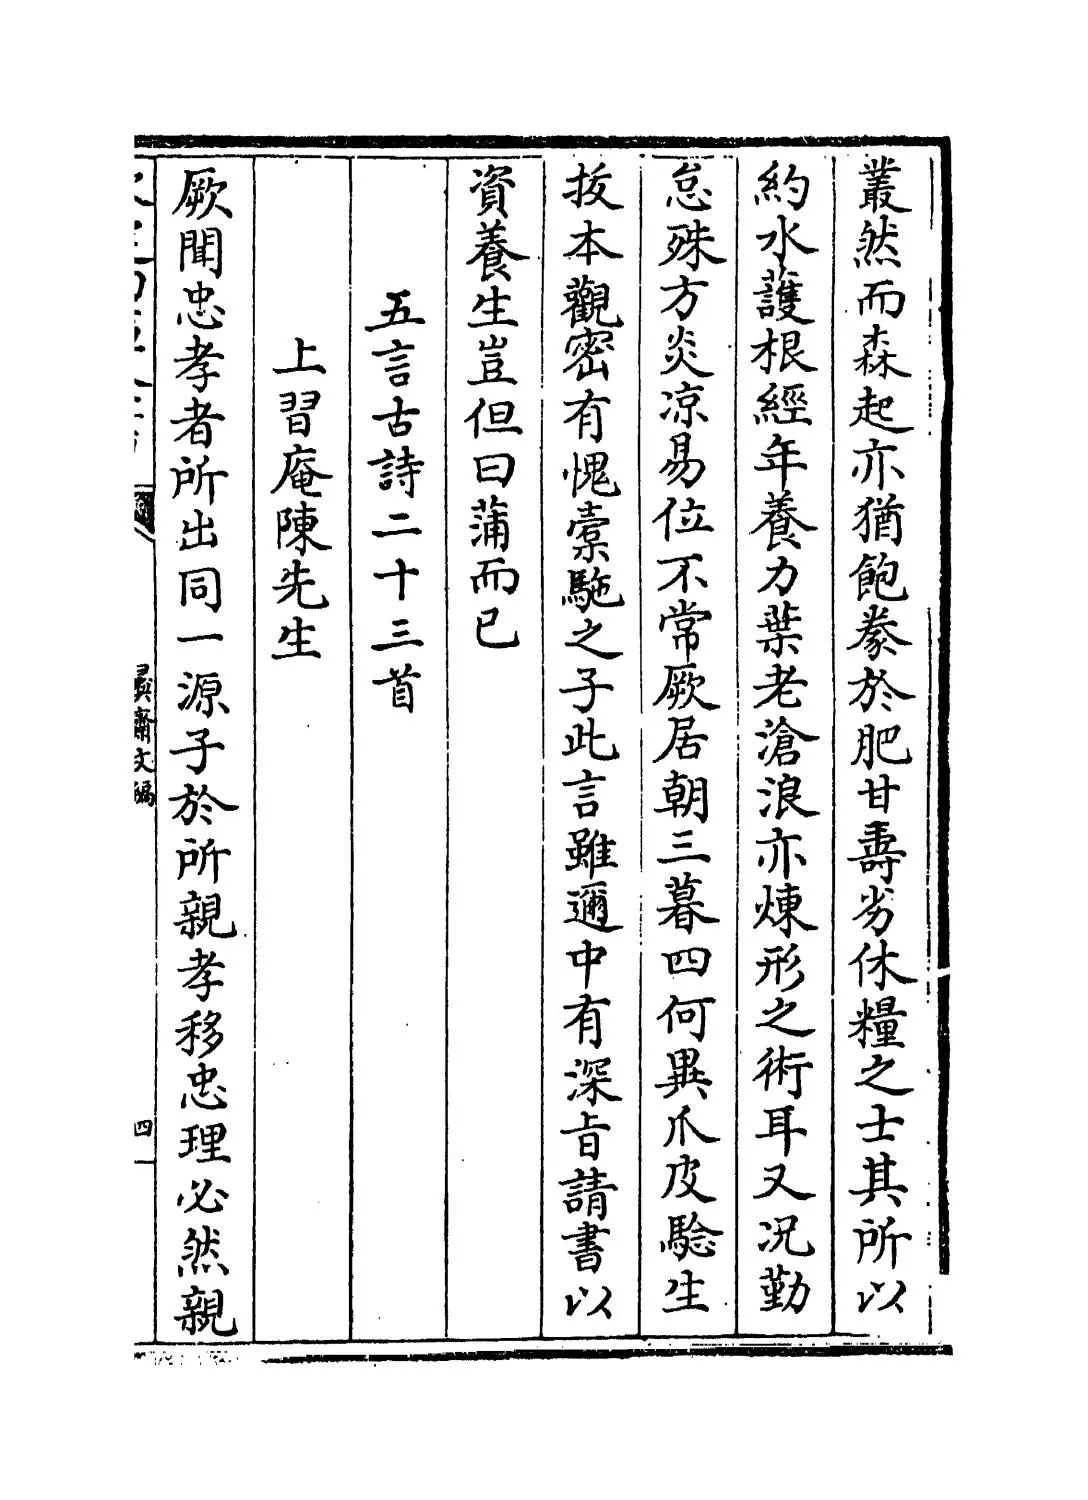 叢然而森起亦猶飽豢於肥甘壽劣休糧之士其所以
約水護根經年養力葉老滄浪亦煉形之術耳又況勤
怠殊方炎凉易位不常厥居朝三暮四何異爪皮騐生
拔本觀密有愧橐駞之子此言雖邇中有深旨請書以
資養生豈但曰蒲而已
五言古詩二十三首
上習庵陳先生
厥聞忠孝者所出同一源子於所親孝移忠理必然親
彛齋文編
四